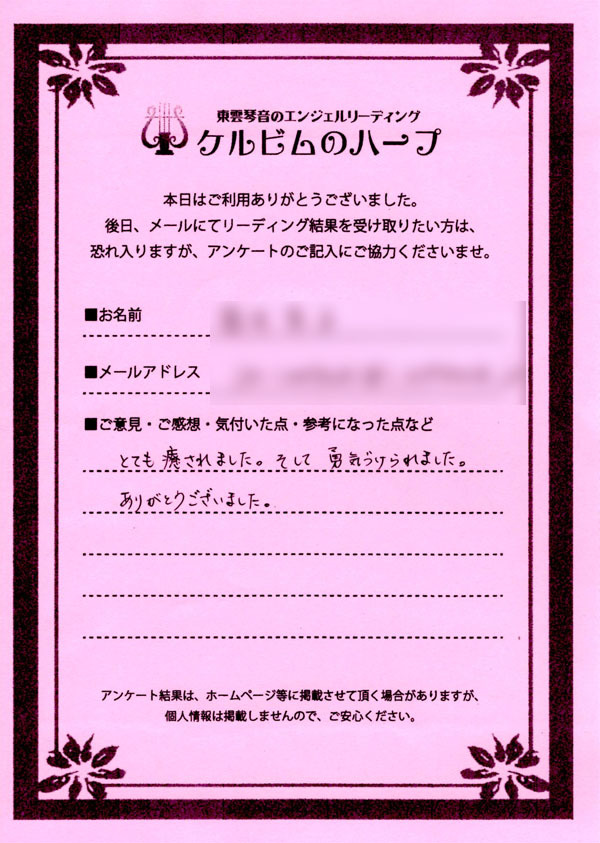 東雲琴音のエンジェルリーディング
ケルビムのハープ
本日はご利用ありがとうございました。
後日、メールにてリーディング結果を受け取りたい方は、
恐れ入りますが、アンケートのご記入にご協力くださいませ。
■お名前
■メールアドレス
■ご意見・ご感想・気付いた点・参考になった点など
とても癒されました。そして勇気づけられました。
ありがとうございました。
アンケート結果は、ホームページ等に掲載させて頂く場合がありますが、
個人情報は掲載しませんので、ご安心ください。